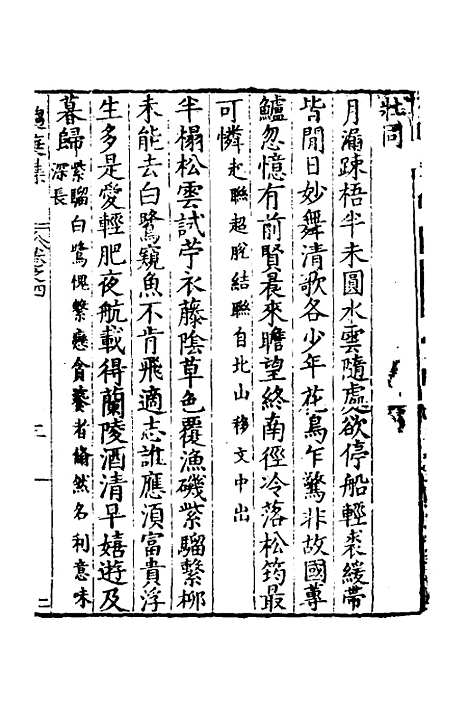 壯同
月灞踈梧半未圓水雲隨處欲停船輕裘緩帶
皆閒日妙舞清歌各少年花鳥乍驚非故國蓴
鱸忽憶有前賢晨來瞻望終南徑冷落松筠最
可憐起聯超脫結聯自北山移文中出
半榻松雲試苧衣藤陰草色覆漁磯紫騮繫柳
未能去白鷺窺魚不肯飛適志誰應須富貴浮
生多是愛輕肥夜航載得蘭陵酒清早嬉遊及
暮歸紫騮白鷺愧繫戀貪饕者翛然名利意味
深長